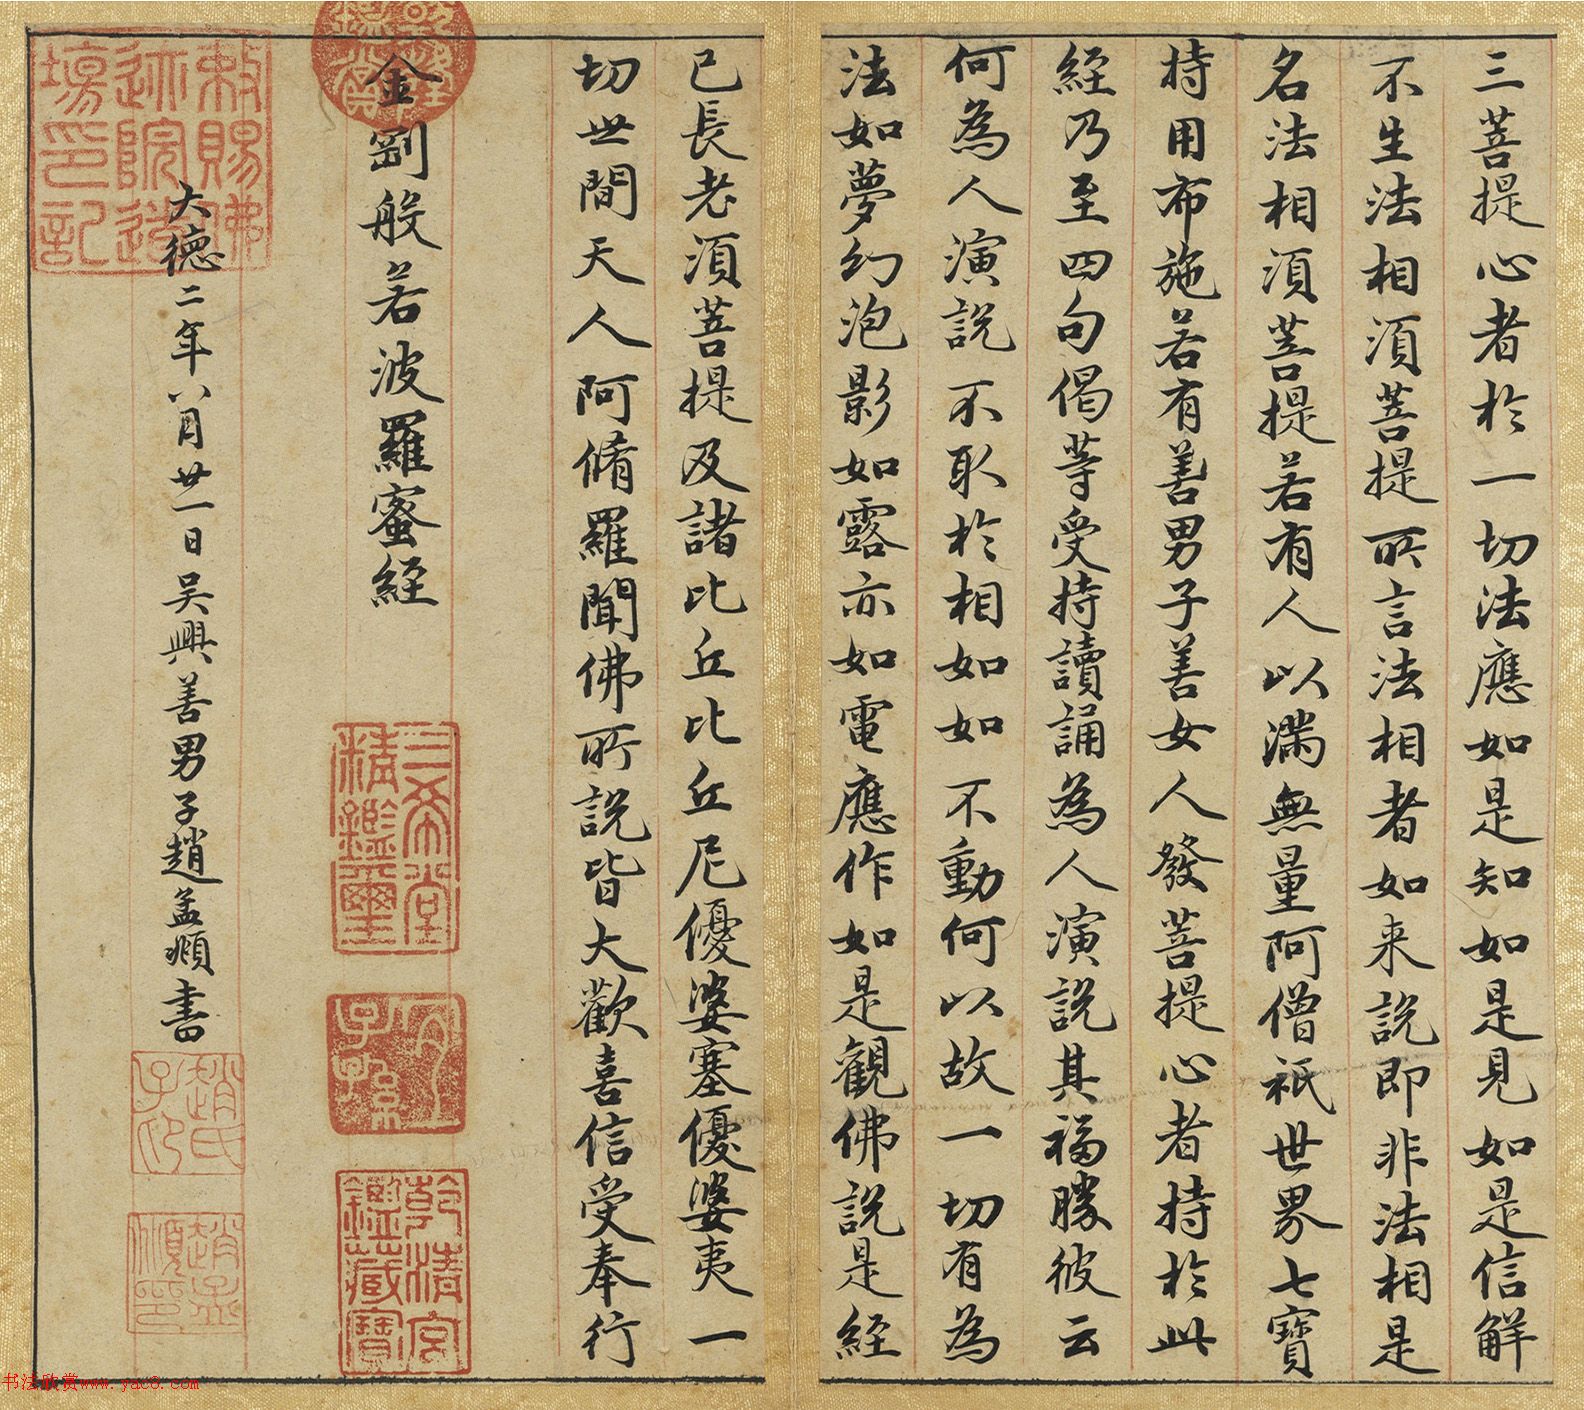 三菩提心者於一切法應如是知如是見如是信解
不生法相須菩提所言法相者如来說即非法相是
名法相須菩提若有人以滿無量阿僧祇世界七寶
持用布施若有善男子善女人發菩提心者持於此
經乃至四句偈等受持讀誦為人演說其福勝彼云
何為人演說不取於相如如不動何以故一切有為
法如夢幻泡影如露亦如電應作如是觀佛說是經
已長老須菩提及諸比丘比丘尼優婆塞優婆夷一
切世間天人阿脩羅聞佛所說皆大歡喜信受奉行
金剛般若波羅蜜經
三希堂
精鑑璽
宜
子孫
乾清宮
鑑藏寶
大德二年八月廿一日吳興善男子趙孟頫書
趙氏
子昂
趙孟
頫印
敕賜佛
迹院道
場印記
书法欣赏www.yac8.com